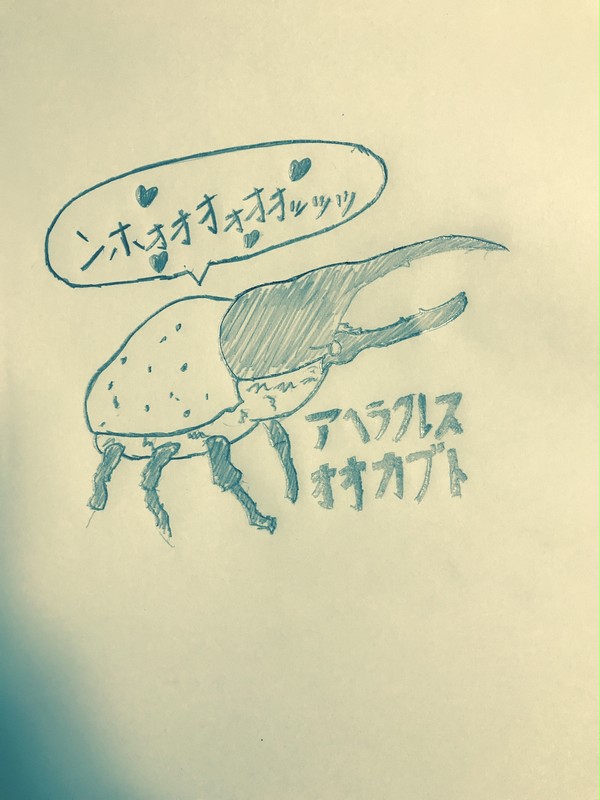 ンホォオオォオオッッッ
アヘラクレス
オオカブト